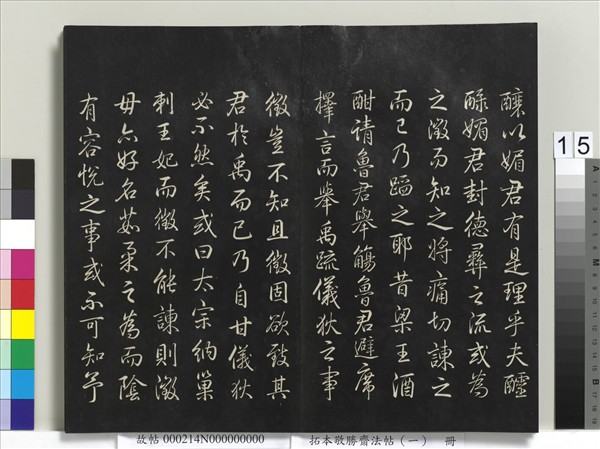 釀以媚君有是理乎夫醽
醁媚君封德彝之流或為
之徵而知之將痛切諫之
而已乃蹈之耶昔梁王酒
酣請魯君舉觴魯君避席
擇言而舉禹疏儀狄之事
徵豈不知且徵固欲致其
君於禹而已乃自甘儀狄
必不然矣或曰太宗納巢
刺王妃而徵不能諫則徵
毋亦好名茹柔之為而陰
有容悅之事或不可知予
15
A
M
B
故帖 000214N000000000 拓本敬勝齋法帖（一） 冊